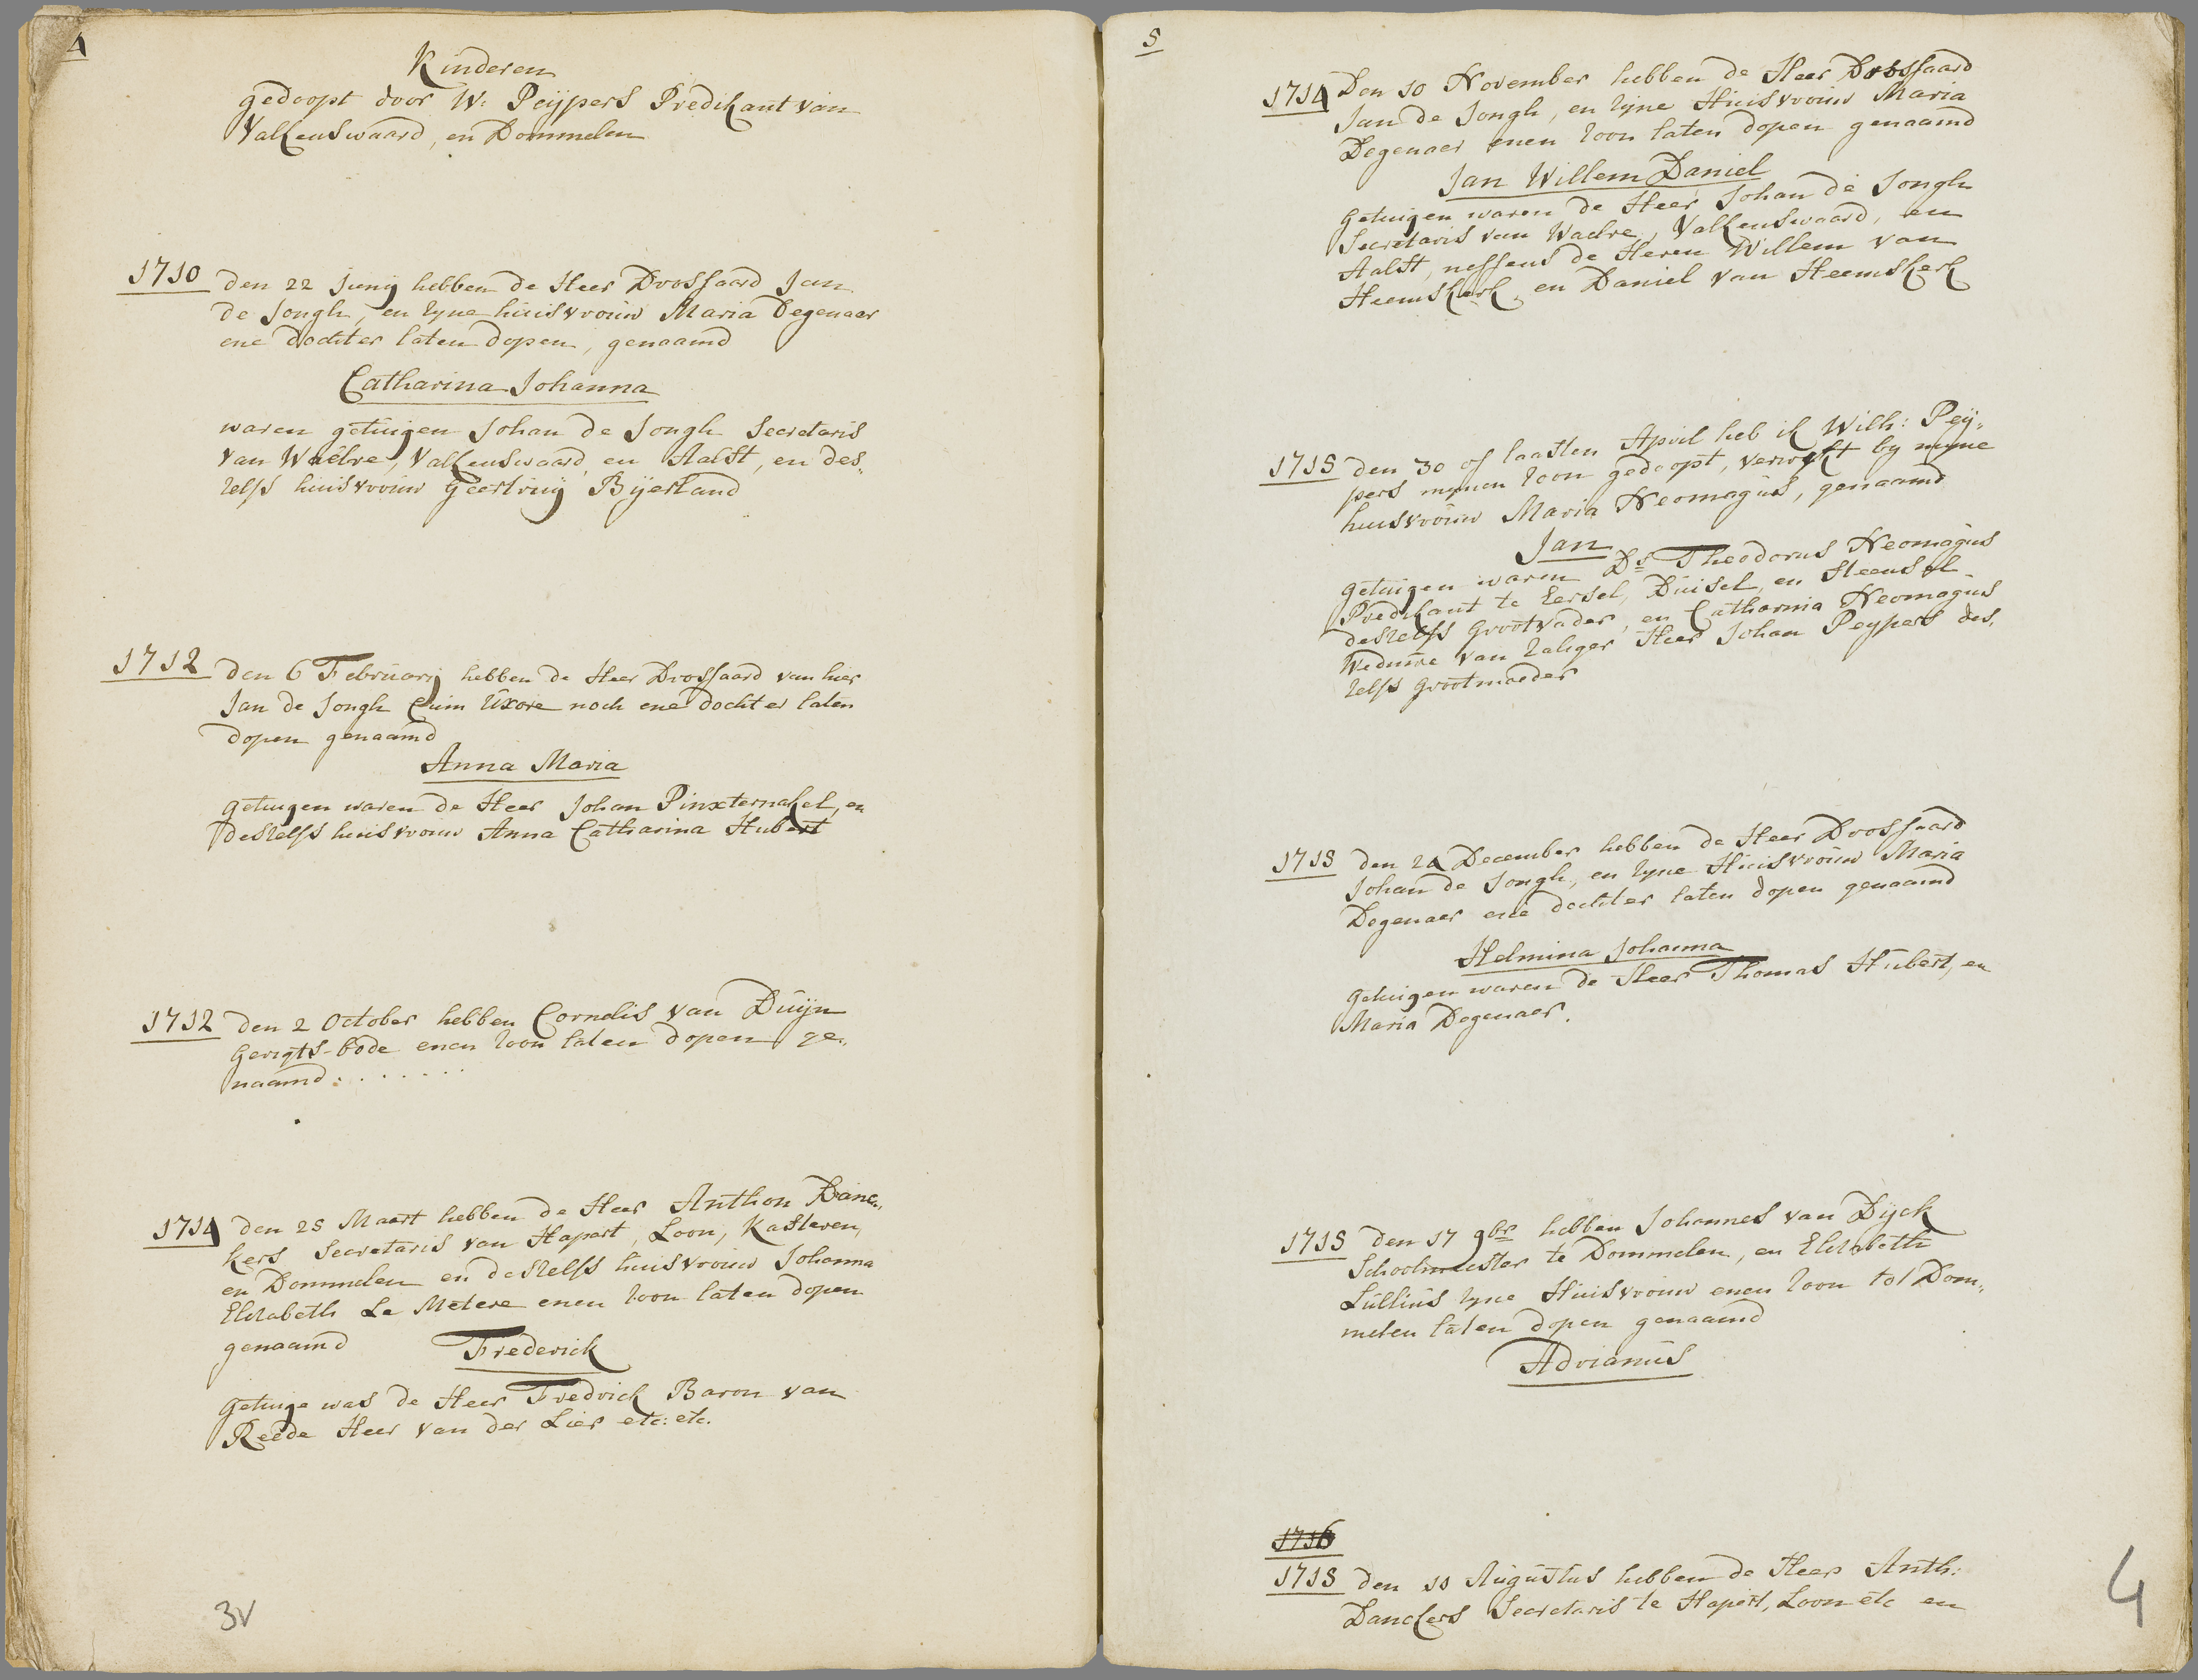 4
Kinderen
gedoopt door W: Peijpers Predikant van
Valkenswaard, en Dommelen
1710 den 22 Junij hebben de Heer Drossaard Jan
de Jongh, en zyne huisvrouw Maria Degenaar
ene dochter laten dopen, genaamd
Catharina Johanna
waren getuigen Johan de Jongh Secretaris
van Waelre, Valkenswaard, en Aalst, en des„
zelfs huisvrouw Geertruij Bijerland
1712 den 6 Februarij hebben de Heer Drossaard van hier
Jan de Jongh Cum Uxore noch ene dochter laten
dopen genaamd
Anna Maria
getuigen waren de Heer Johan Pinxternakel, en
deszelfs huisvrouw Anna Catharina Hubert
1712 den 2 October hebben Cornelis van Duijn
Gerigts-bode enen zoon laten dopen ge„
naamd . . . . . . .
1714 den 25 Maart hebben de Heer Anthon Danc„
kers Secretaris van Hapert, Loon, Kasteren,
en Dommelen en deszelfs huisvrouw Johanna
Elizabeth Le Metere enen zoon laten dopen
genaamd Frederick
getuige was de Heer Fredrick Baron van
Reede Heer van der Lier etc: etc.
3v
5
1714 Den 10 November hebben de Heer Drossaard
Jan de Jongh, en zyne Huisvrouw Maria
Degenaer enen zoon laten dopen genaamd
Jan Willem Daniel
getuigen waren de Heer Johan de Jongh
Secretaris van Waelre, Valkenswaard, en
Aalst, neffens de Heren Willem van
Heemskerk, en Daniel van Heemskerk
1715 den 30 of laasten April heb ik Wilh: Peij„
pers mynen zoon gedoopt, verwekt by myne
huisvrouw Maria Neomagus, genaamd
Jan
getuigen waren Ds Theodorus Neomagus
Predikant te Eersel, Duisel, en Steensel
deszelfs grootvader, en Catharina Neomagus
Weduwe van zaliger Heer Johan Peypers des„
zelfs grootmoeder
1715 den 24 December hebben de Heer Drossaard
Johan de Jongh, en zyne Huisvrouw Maria
Degenaer ene dochter laten dopen genaamd
Helmina Johanna
getuigen waren de Heer Thomas Hubert, en
Maria Degenaer.
1715 den 17 9br hebben Johannes van Dijck
Schoolmeester te Dommelen, en Elizabeth
Lullius zyne Huisvrouw enen zoon tot Dom„
melen laten dopen genaamd
Adrianus
1716
1715 den 11 Augustus hebben de Heer Anth:
Danckers Secretaris te Hapert, Loon etc en
4